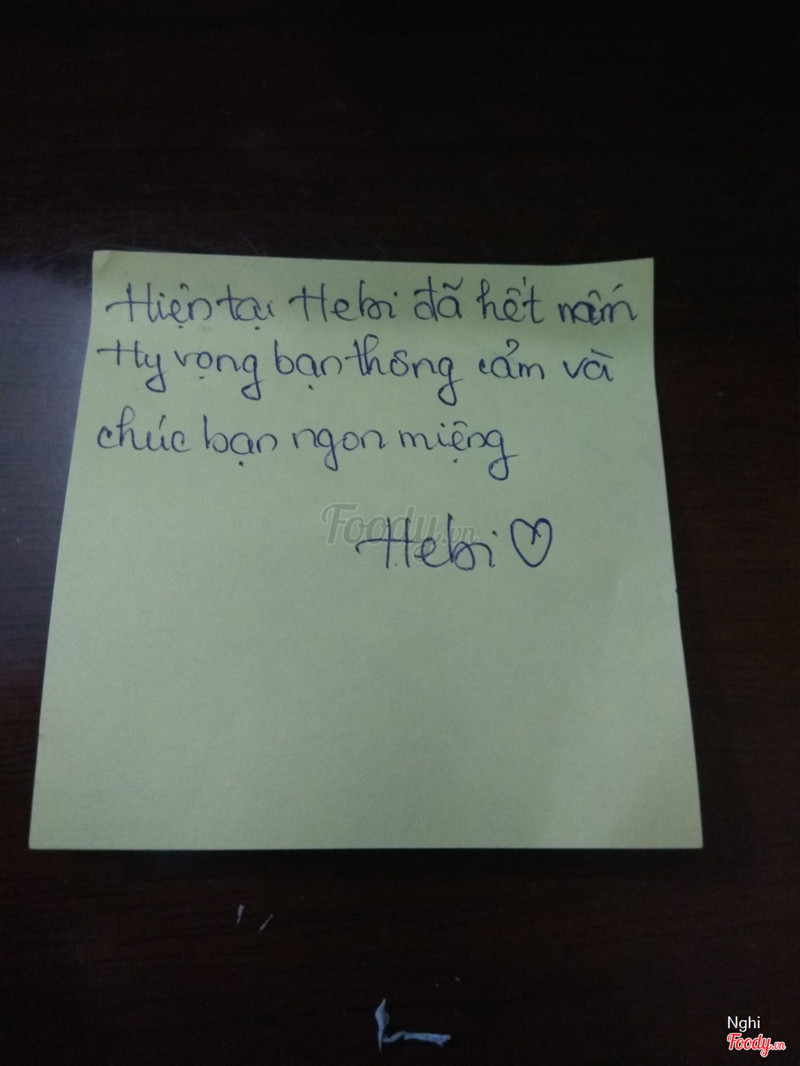 Hiện tại Hebi đã hết nấm
Hy vọng bạn thông cảm và
chúc bạn ngon miệng
Foody.vn
Hebi
Nghi
Foody.vn